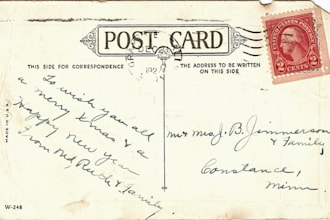 POST CARD
THIS SIDE FOR CORRESPONDENCE
THE ADDRESS TO BE WRITTEN
ON THIS SIDE.
To wish you all
a merry Xmas & a
Happy new year
From Rude & Family
Mr & Mrs J. B. Jimmerson
& Family
Constance,
Minn.
2 CENTS 2
MADE IN U.S.A.
W-248